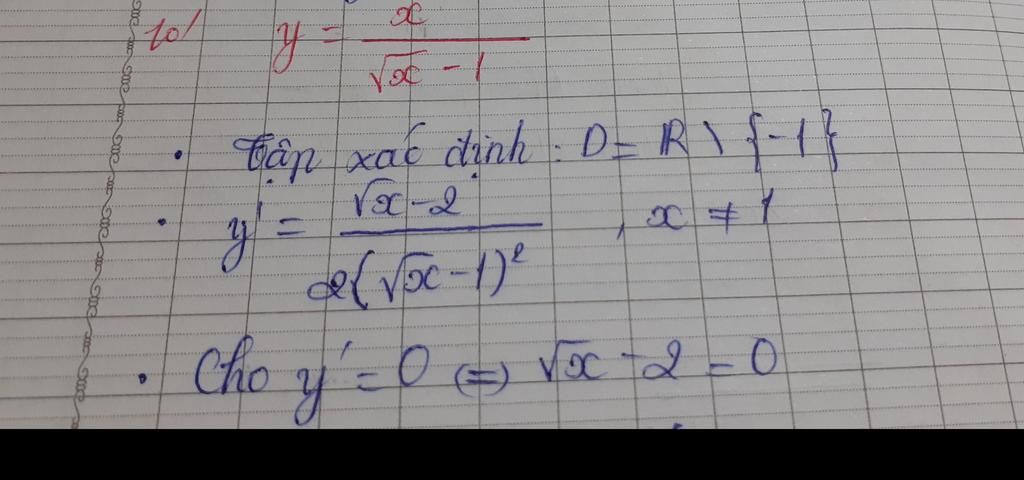 10/ y = x / (√x - 1)
• Tập xác định : D = ℝ \ {-1}
• y' = (√x - 2) / (2(√x - 1)²) , x ≠ 1
• Cho y' = 0 (=) √x - 2 = 0